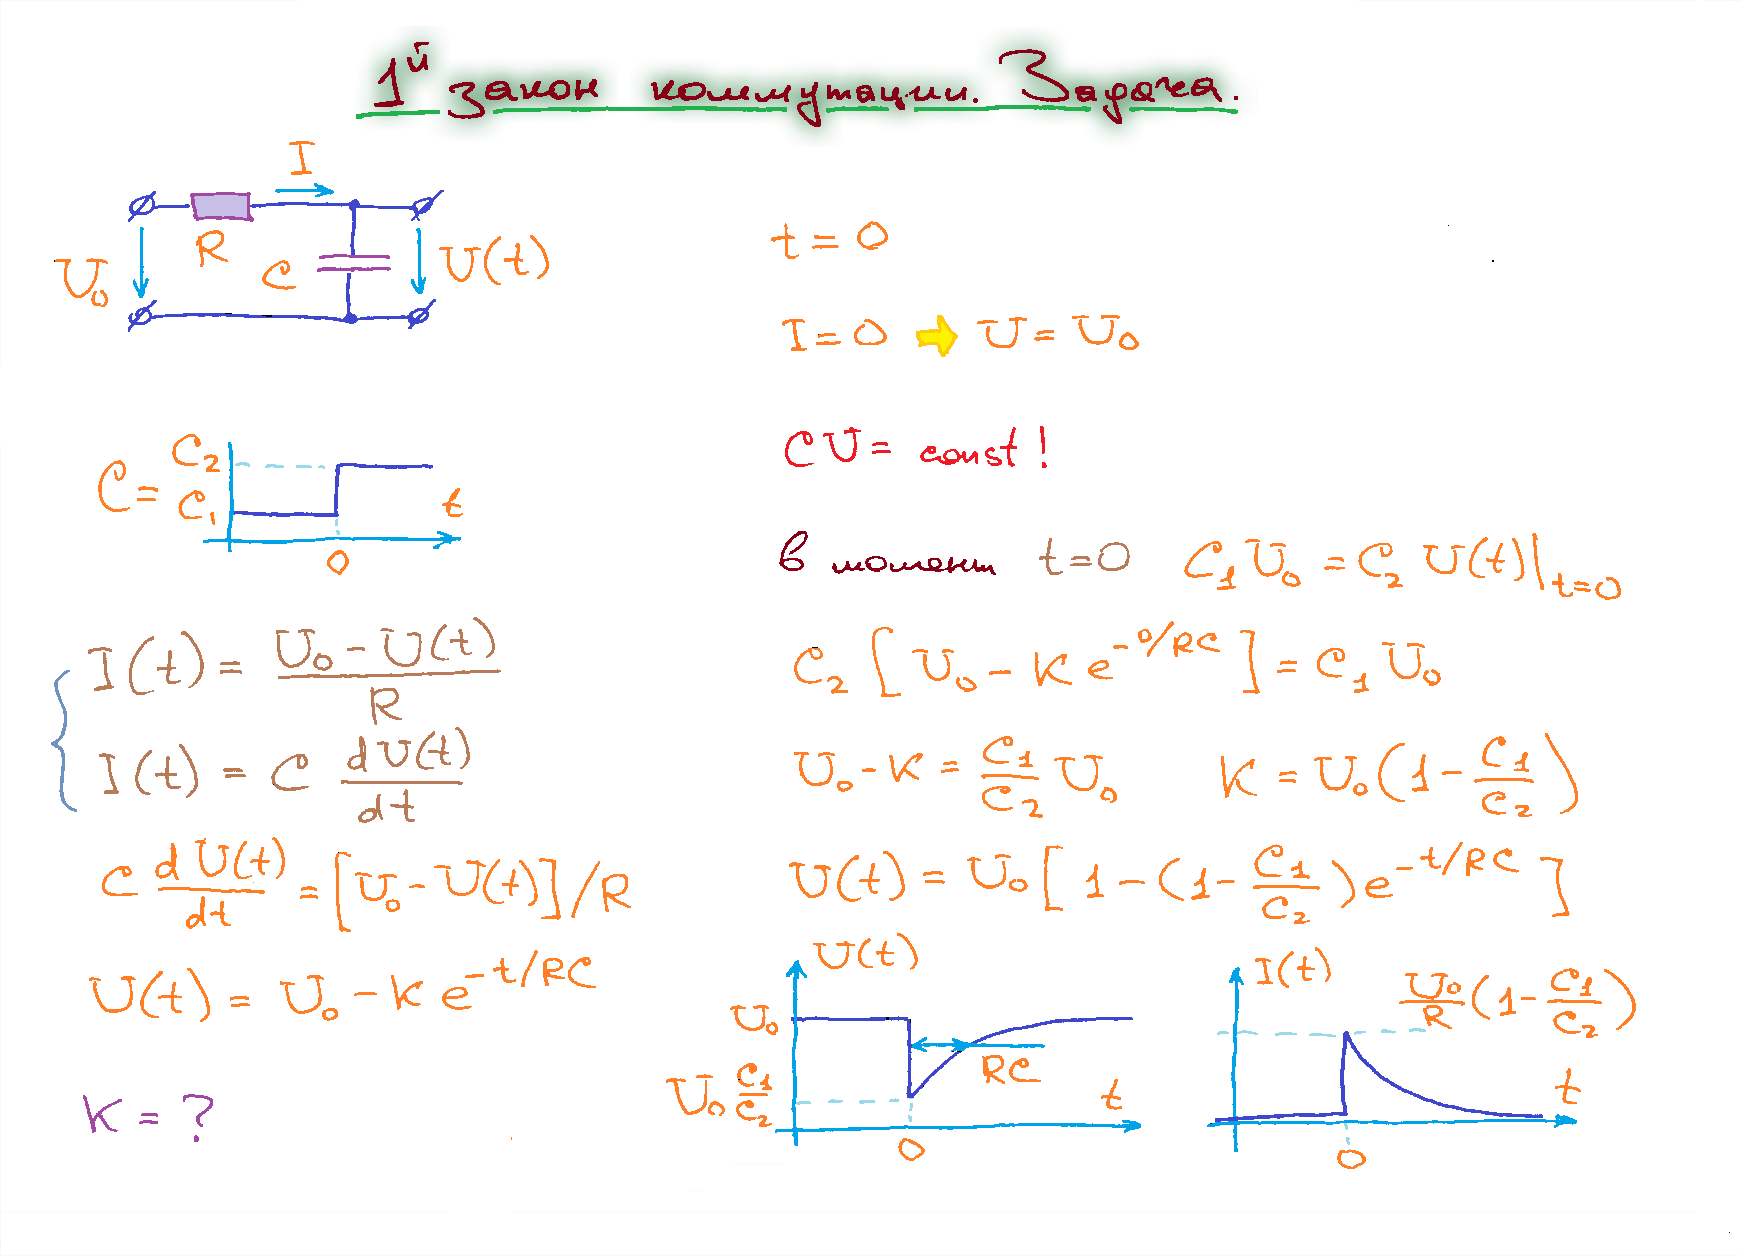 1й закон коммутации. Задача.
I
R
C
U₀
U(t)
C =
C₂
C₁
t
0
I(t) = (U₀ - U(t))/R
I(t) = C dU(t)/dt
C dU(t)/dt = [U₀ - U(t)]/R
U(t) = U₀ - K e^(-t/RC)
K = ?
t = 0
I = 0 ➡ U = U₀
CU = const!
в момент t=0 C₁U₀ = C₂ U(t)|t=0
C₂ [U₀ - K e^(-0/RC)] = C₁ U₀
U₀ - K = C₁/C₂ U₀ K = U₀(1 - C₁/C₂)
U(t) = U₀[1 - (1 - C₁/C₂)e^(-t/RC)]
U(t)
U₀
RC
U₀ C₁/C₂
t
0
I(t)
U₀/R (1 - C₁/C₂)
t
0